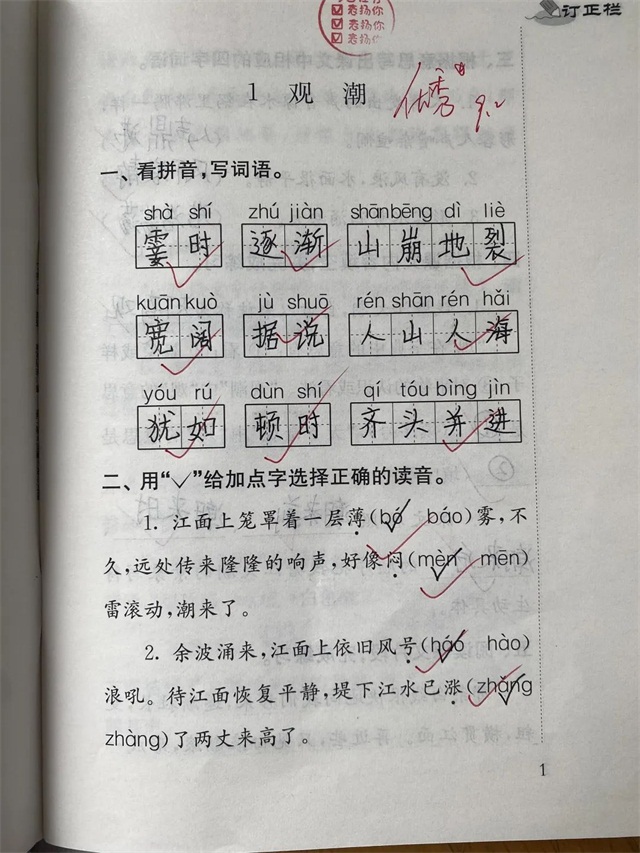 表扬你
表扬你
表扬你
订正栏
1 观 潮
优秀
9.2
一、看拼音,写词语。
shà shí zhú jiàn shānbēng dì liè
霎时 逐渐 山崩地裂
kuān kuò jù shuō rén shān rén hǎi
宽阔 据说 人山人海
yóu rú dùn shí qí tóu bìng jìn
犹如 顿时 齐头并进
二、用“✓”给加点字选择正确的读音。
1. 江面上笼罩着一层薄(bó báo)雾,不
久,远处传来隆隆的响声,好像闷(mèn mēn)
雷滚动,潮来了。
2. 余波涌来,江面上依旧风号(háo hào)
浪吼。待江面恢复平静,堤下江水已涨(zhǎng
zhàng)了两丈来高了。
1